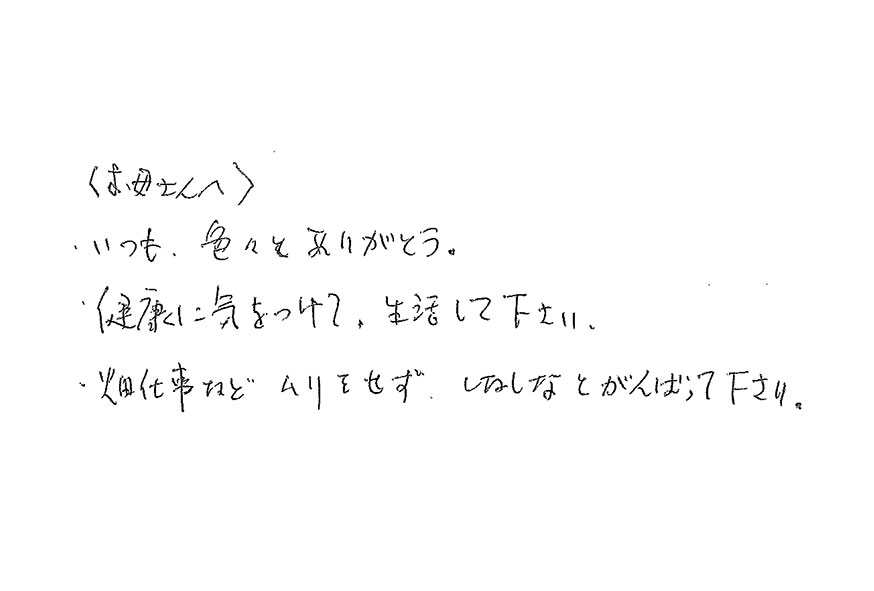 〈お母さんへ〉
・いつも、色々とありがとう。
・健康に気をつけて、生活して下さい、
・畑仕事などムリをせず、しなしなとがんばって下さい。